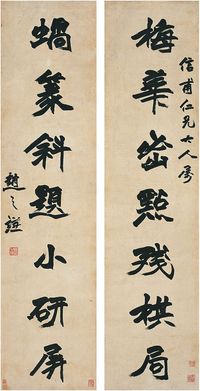 信甫仁兄大人屬
梅華密點残棋局
蝸篆斜題小研屏
趙之謙